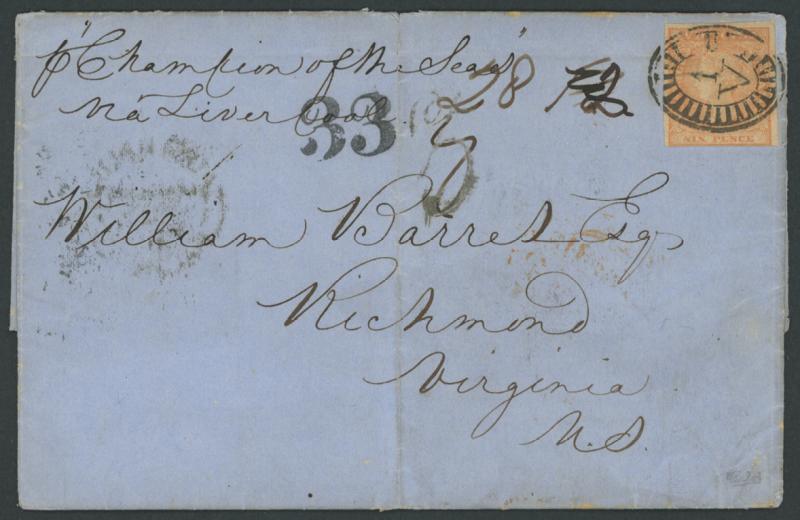 p "Champion of the Seas"
via Liverpool
33
28
1 V
SIX PENCE
William Barret Esq
Richmond
Virginia
U.S.